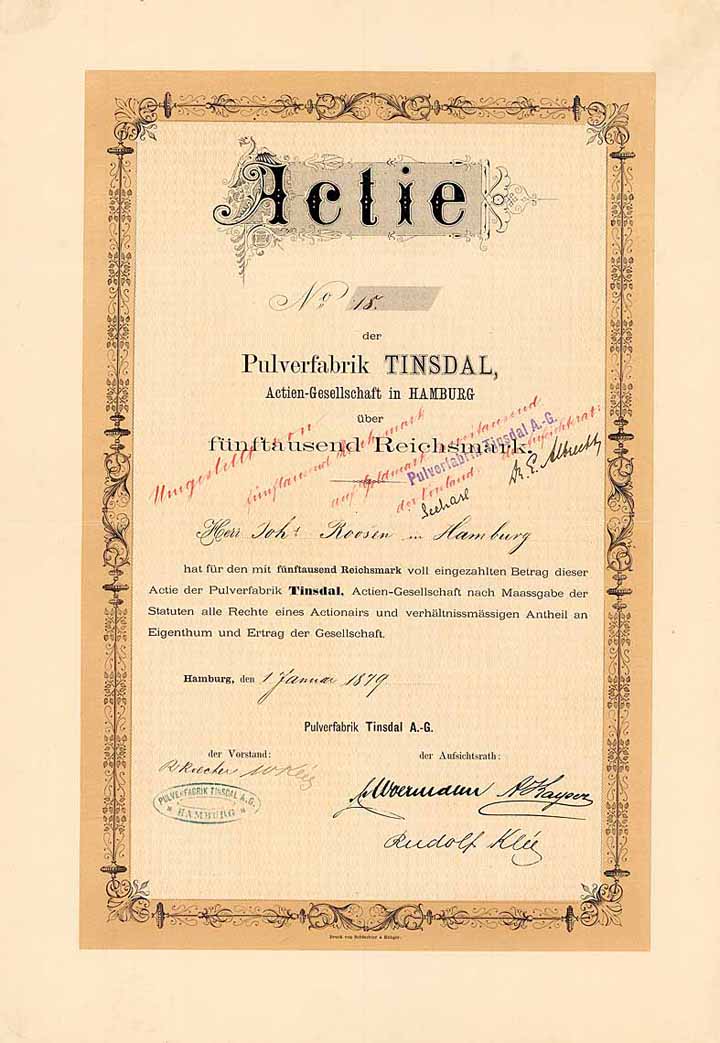 Actie
No 15.
der
Pulverfabrik TINSDAL,
Actien-Gesellschaft in HAMBURG
über
fünftausend Reichsmark.
Umgestellt von
fünftausend Reichsmark
auf Goldmark zweitausend
Pulverfabrik Tinsdal A.-G.
der Vorstand: der Aufsichtsrat:
Seehase Dr. E. Albrecht
Herr Joh. Roosen in Hamburg
hat für den mit fünftausend Reichsmark voll eingezahlten Betrag dieser
Actie der Pulverfabrik Tinsdal, Actien-Gesellschaft nach Maassgabe der
Statuten alle Rechte eines Actionairs und verhältnissmässigen Antheil an
Eigenthum und Ertrag der Gesellschaft.
Hamburg, den 1 Januar 1879
Pulverfabrik Tinsdal A.-G.
der Vorstand: der Aufsichtsrath:
Woermann A Kayser
Rudolf Klée
PULVERFABRIK TINSDAL A.G.
HAMBURG